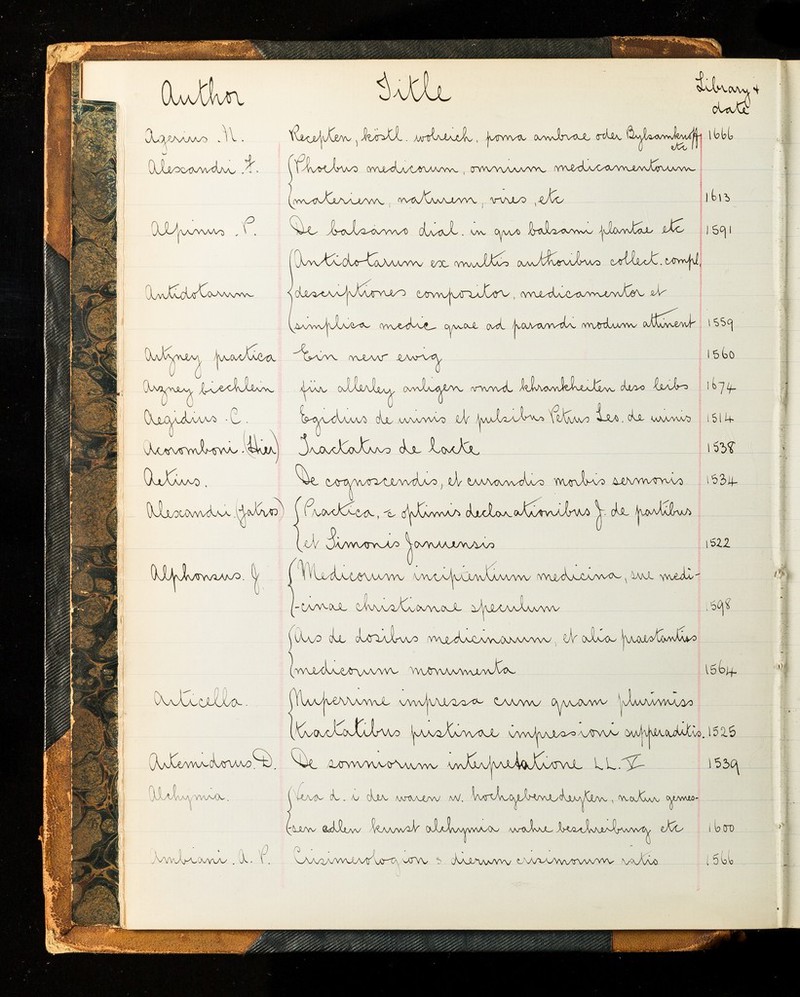 Author Title Library & date
Agerius . N. Recepten, köstl. wolreich, poma ambrae oder Bylsamknöpff etc 1666
Alexandri . F. Phoebus medicorum, omnium medicamentorum
materiem, naturem, vires, etc 1613
Alpinus . P. De balsamo dial. in quo balsami plantae etc 1591
Antidotarum ex multis authoribus collect. compl.
Antidotarum descriptiones compositor, medicamentor et
simplica medic quae ad parandi modum attinent 1559
Artzney practica Ein new ewig 1560
Arzney biechlein für allerley anligen vnnd khrankheiten dess leibs 1674
Aegidius . C. Egidius de urinis et pulsibus Petrus Les. de urinis 1514
Acoromboni . (Hier) Tractatus de Lacte 1538
Aetius. De cognoscendis, et curandis morbis sermonis 1534
Alexandri (Jatros) Practica, c optimis declarationibus J. de partibus
et Simonis Januensis 1522
Alphonsus. J Medicorum incipientium medicina, sue medi-
-cinae christianae speculum 1598
Ars de dosibus medicinarum, et alia praestantiss
medicorum monumenta 1564
Articella. Nuperrime impressa cum quam plurimiss
tractatibus pristinae impressioni supperaditis. 1525
Artemidorus. D. De somniorum interpretatione LL. V 1539
Alchymia. Vera d. i der waren w. hochgebenedeyten, natur gemes-
-sen edlen kunst alchymia wahre beschreibung etc 1600
Ambiani . A. P. Crisimerologion s dierum crisimorum ratio 1566